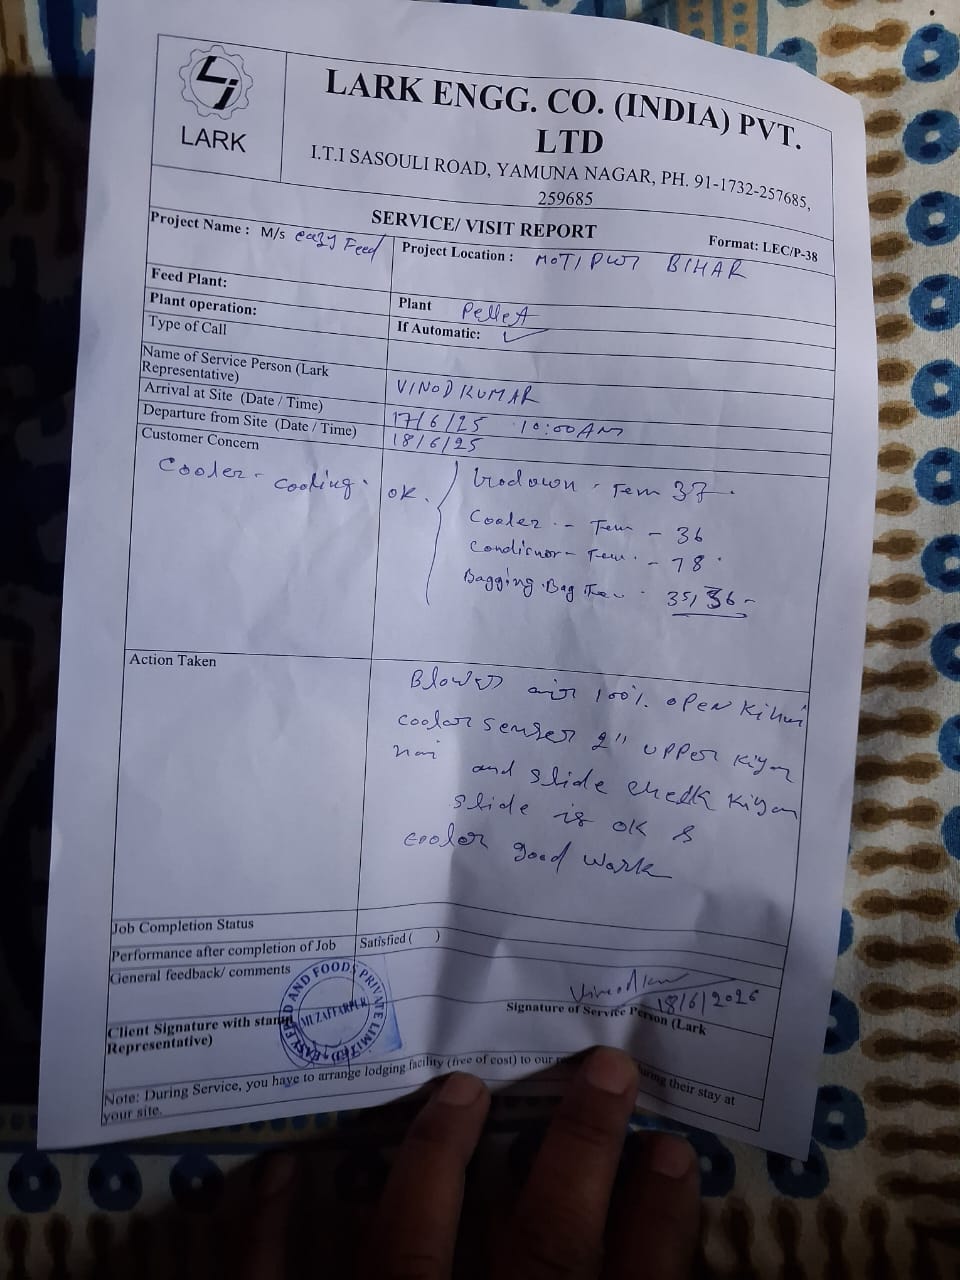 LARK
LARK ENGG. CO. (INDIA) PVT.
LTD
I.T.I SASOULI ROAD, YAMUNA NAGAR, PH. 91-1732-257685,
259685
SERVICE/ VISIT REPORT
Format: LEC/P-38
Project Name : M/s eazy Feed
Project Location : MOTIPUR BIHAR
Feed Plant:
Plant Pellet
Plant operation:
If Automatic: ✓
Type of Call
Name of Service Person (Lark
Representative)
VINOD KUMAR
Arrival at Site (Date / Time)
17/6/25 10:00 AM
Departure from Site (Date / Time)
18/6/25
Customer Concern
Cooler - cooling. OK.
Tem 37
Cooler - Tem - 36
- 78
Bagging Bag 35/36 -
Action Taken
Blower air 100% open
cooler senser 2" upper kiya
hai and slide check kiya
slide is ok &
cooler good work
Job Completion Status
Performance after completion of Job
Satisfied ( )
General feedback/ comments
18/6/2026
Client Signature with stamp
Representative)
Signature of Service Person (Lark
AND FOODS PRIVATE LIMITED
MUZAFFARPUR
Note: During Service, you have to arrange lodging facility (free of cost) to our during their stay at
your site.